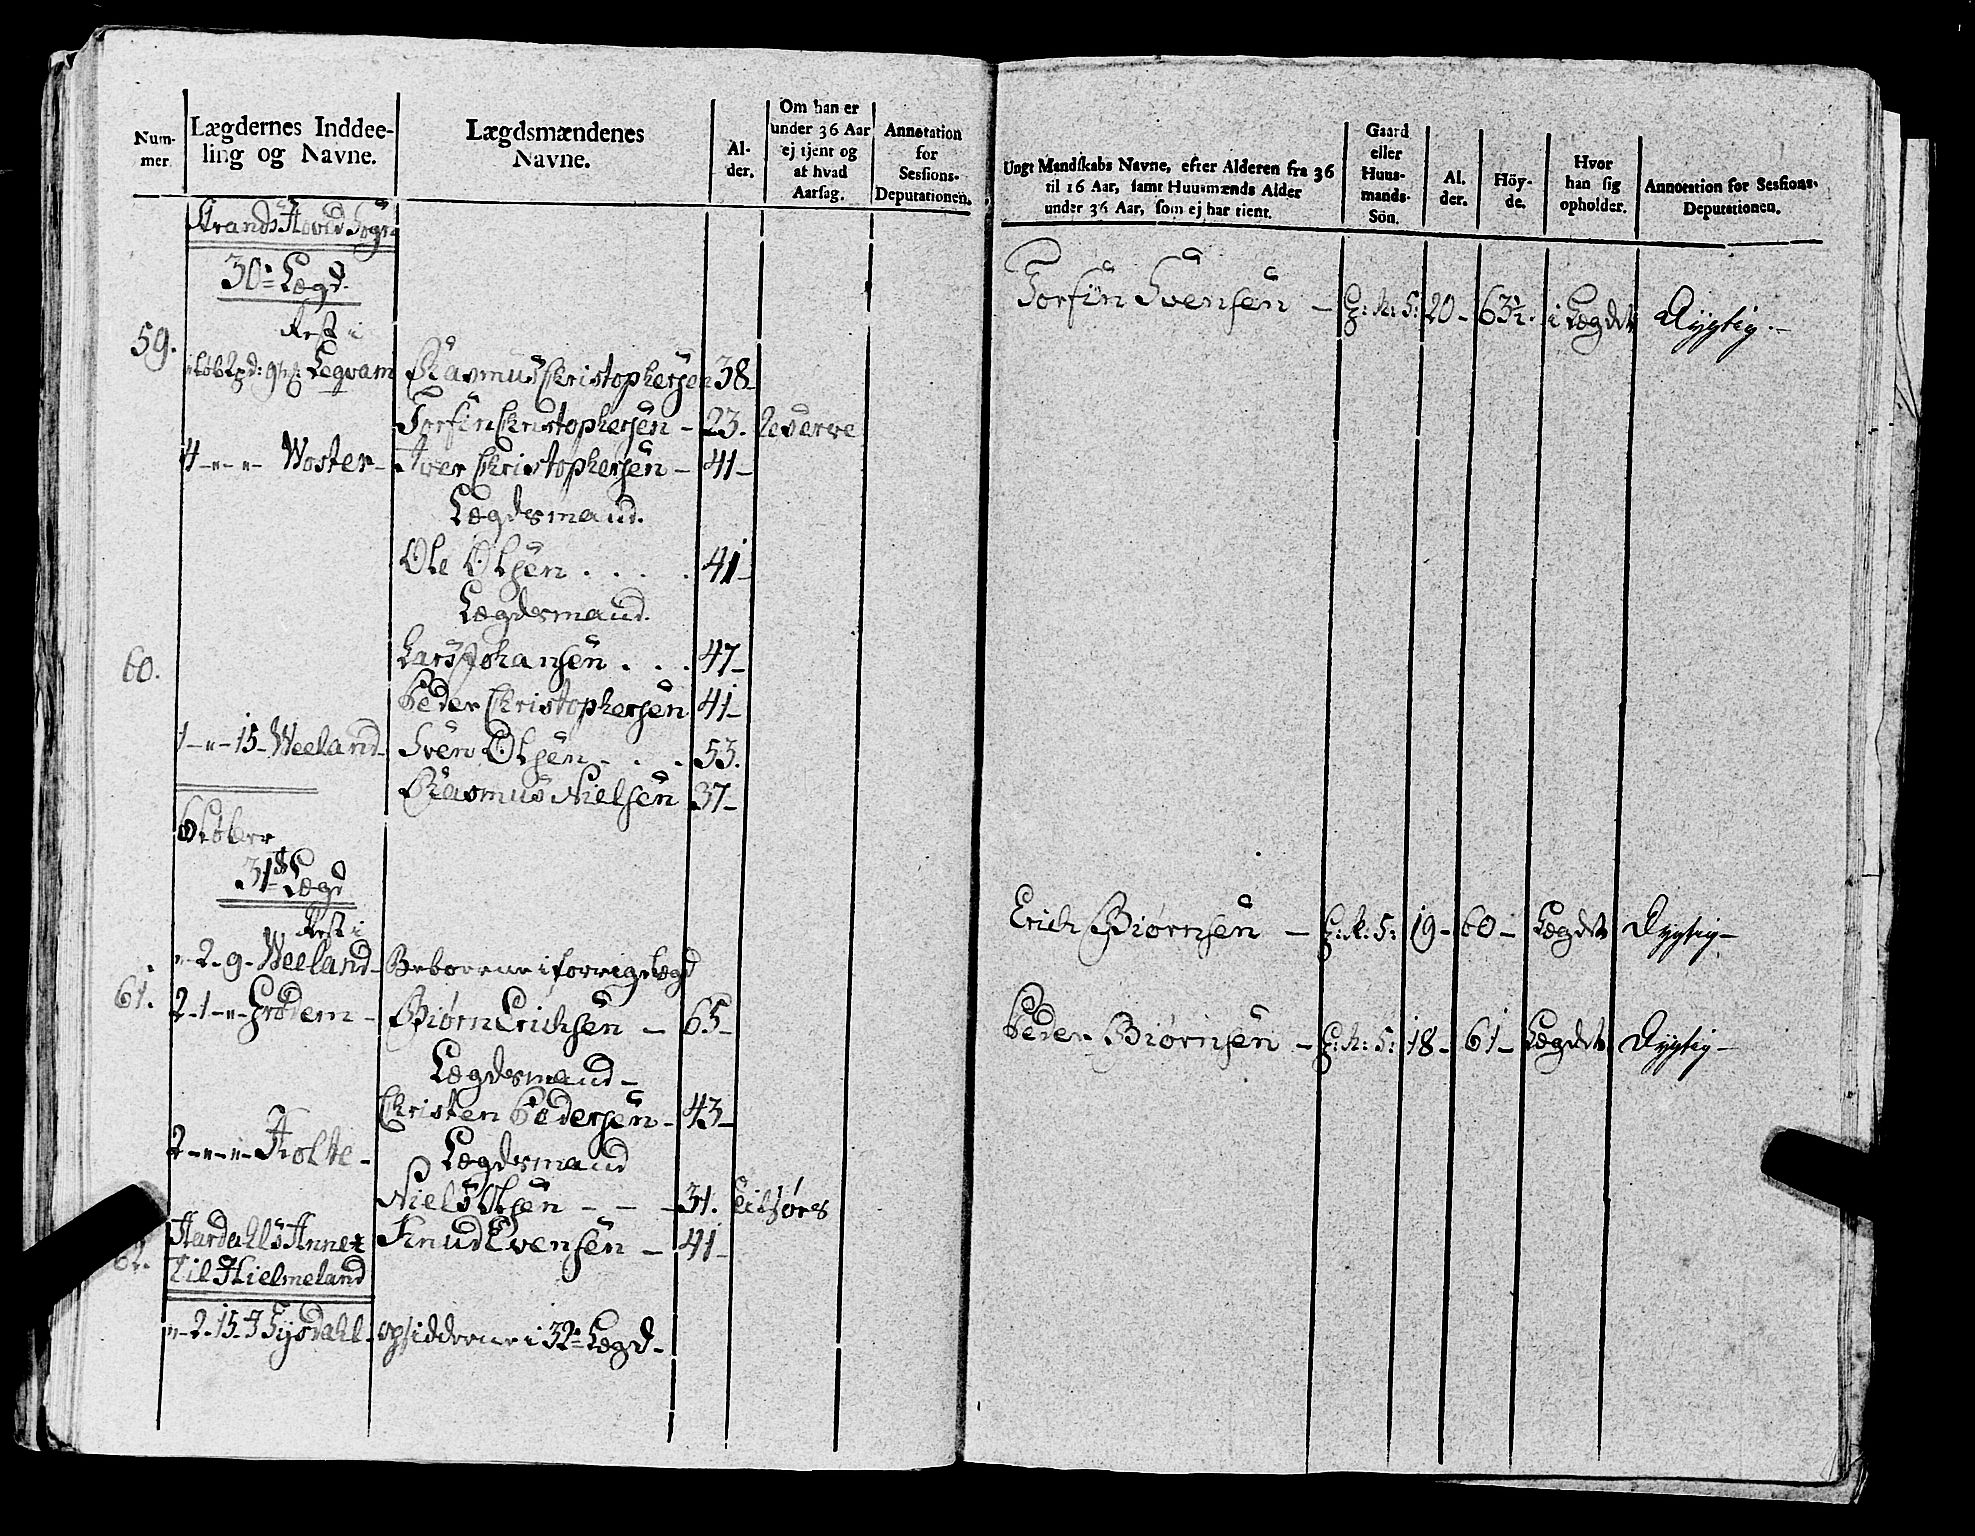 Num-
mer
Lægdernes Inddee-
ling og Navne.
Lægdsmændenes
Navne.
Al-
der.
Om han er
under 36 Aar
ej tjent og
at hvad
Aarsag.
Annotation
for
Sessions-
Deputationen.
Strands Hovid Sogn
30te Lægd.
Rest i
59.
Leqvam Rasmus Christophersen 38-
Torfin Christophersen - 23. Reserve
4-"-"- Woster- Iver Christophersen - 41-
Lægdsmand.
Ole Olsen . . . . 41-
Lægdsmand.
60. Lars Johansen . . . 47-
Peder Christophersen 41-
1-"-15-Weeland- Sven Olsen - . . 53.
Rasmus Nielsen 37-
31te Lægd
Rest i
"-2-9-Weeland- Beboerne i forrige Lægd
61. 2-1-"-Grödem- Biørn Erichsen - 65-
Lægdsmand-
Christen Pedersen - 43-
2-"-"-Holte- Lægdsmand
Niels Olsen - - - 31.
62. Hardahls Annex Knud Evensen - 41-
til Hielmeland
"-2-15-3 Fysdahl- opsidderne i 32te Lægd-
Ungt Mandskabs Navne, efter Alderen fra 36
til 16 Aar, samt Huusmænds Alder
under 36 Aar, som ej har tient.
Gaard
eller
Huus-
mands-
Sön.
Al.
der.
Höy-
de.
Hvor
han sig
opholder.
Annotation for Sessions-
Deputationen.
Torfin Svensen - G: M: S: 20- 63½. i Lægdet Dygtig.-
Erich Biørnsen - G: M: S: 19- 60- Lægdet Dygtig-
Peder Biørnsen - G: M: S: 18- 61- Lægdet Dygtig-